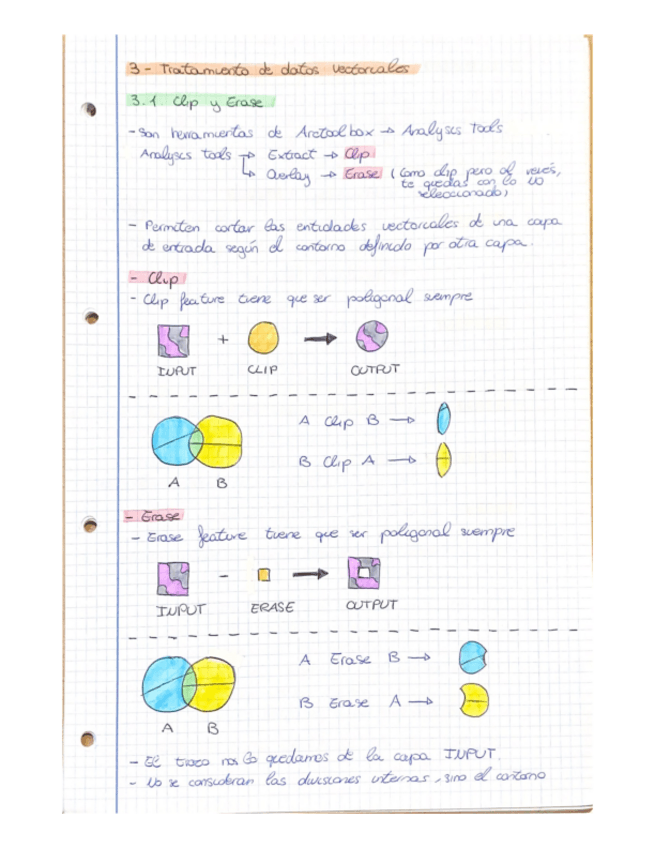 3 - Tratamiento de datos vectoriales
3.1. Clip y Erase
- Son herramientas de Arctoolbox → Analysis Tools
Analysis tools → Extract → Clip
↳ Overlay → Erase (Como clip pero al revés,
te quedas con lo no
seleccionado)
- Permiten cortar las entidades vectoriales de una capa
de entrada según el contorno definido por otra capa.
- Clip
- Clip feature tiene que ser poligonal siempre
+ →
INPUT CLIP OUTPUT
A Clip B →
B Clip A →
A B
- Erase
- Erase feature tiene que ser poligonal siempre
- →
INPUT ERASE OUTPUT
A Erase B →
B Erase A →
A B
- El trozo nos lo quedamos de la capa INPUT.
- No se consideran las divisiones internas, sino el contorno